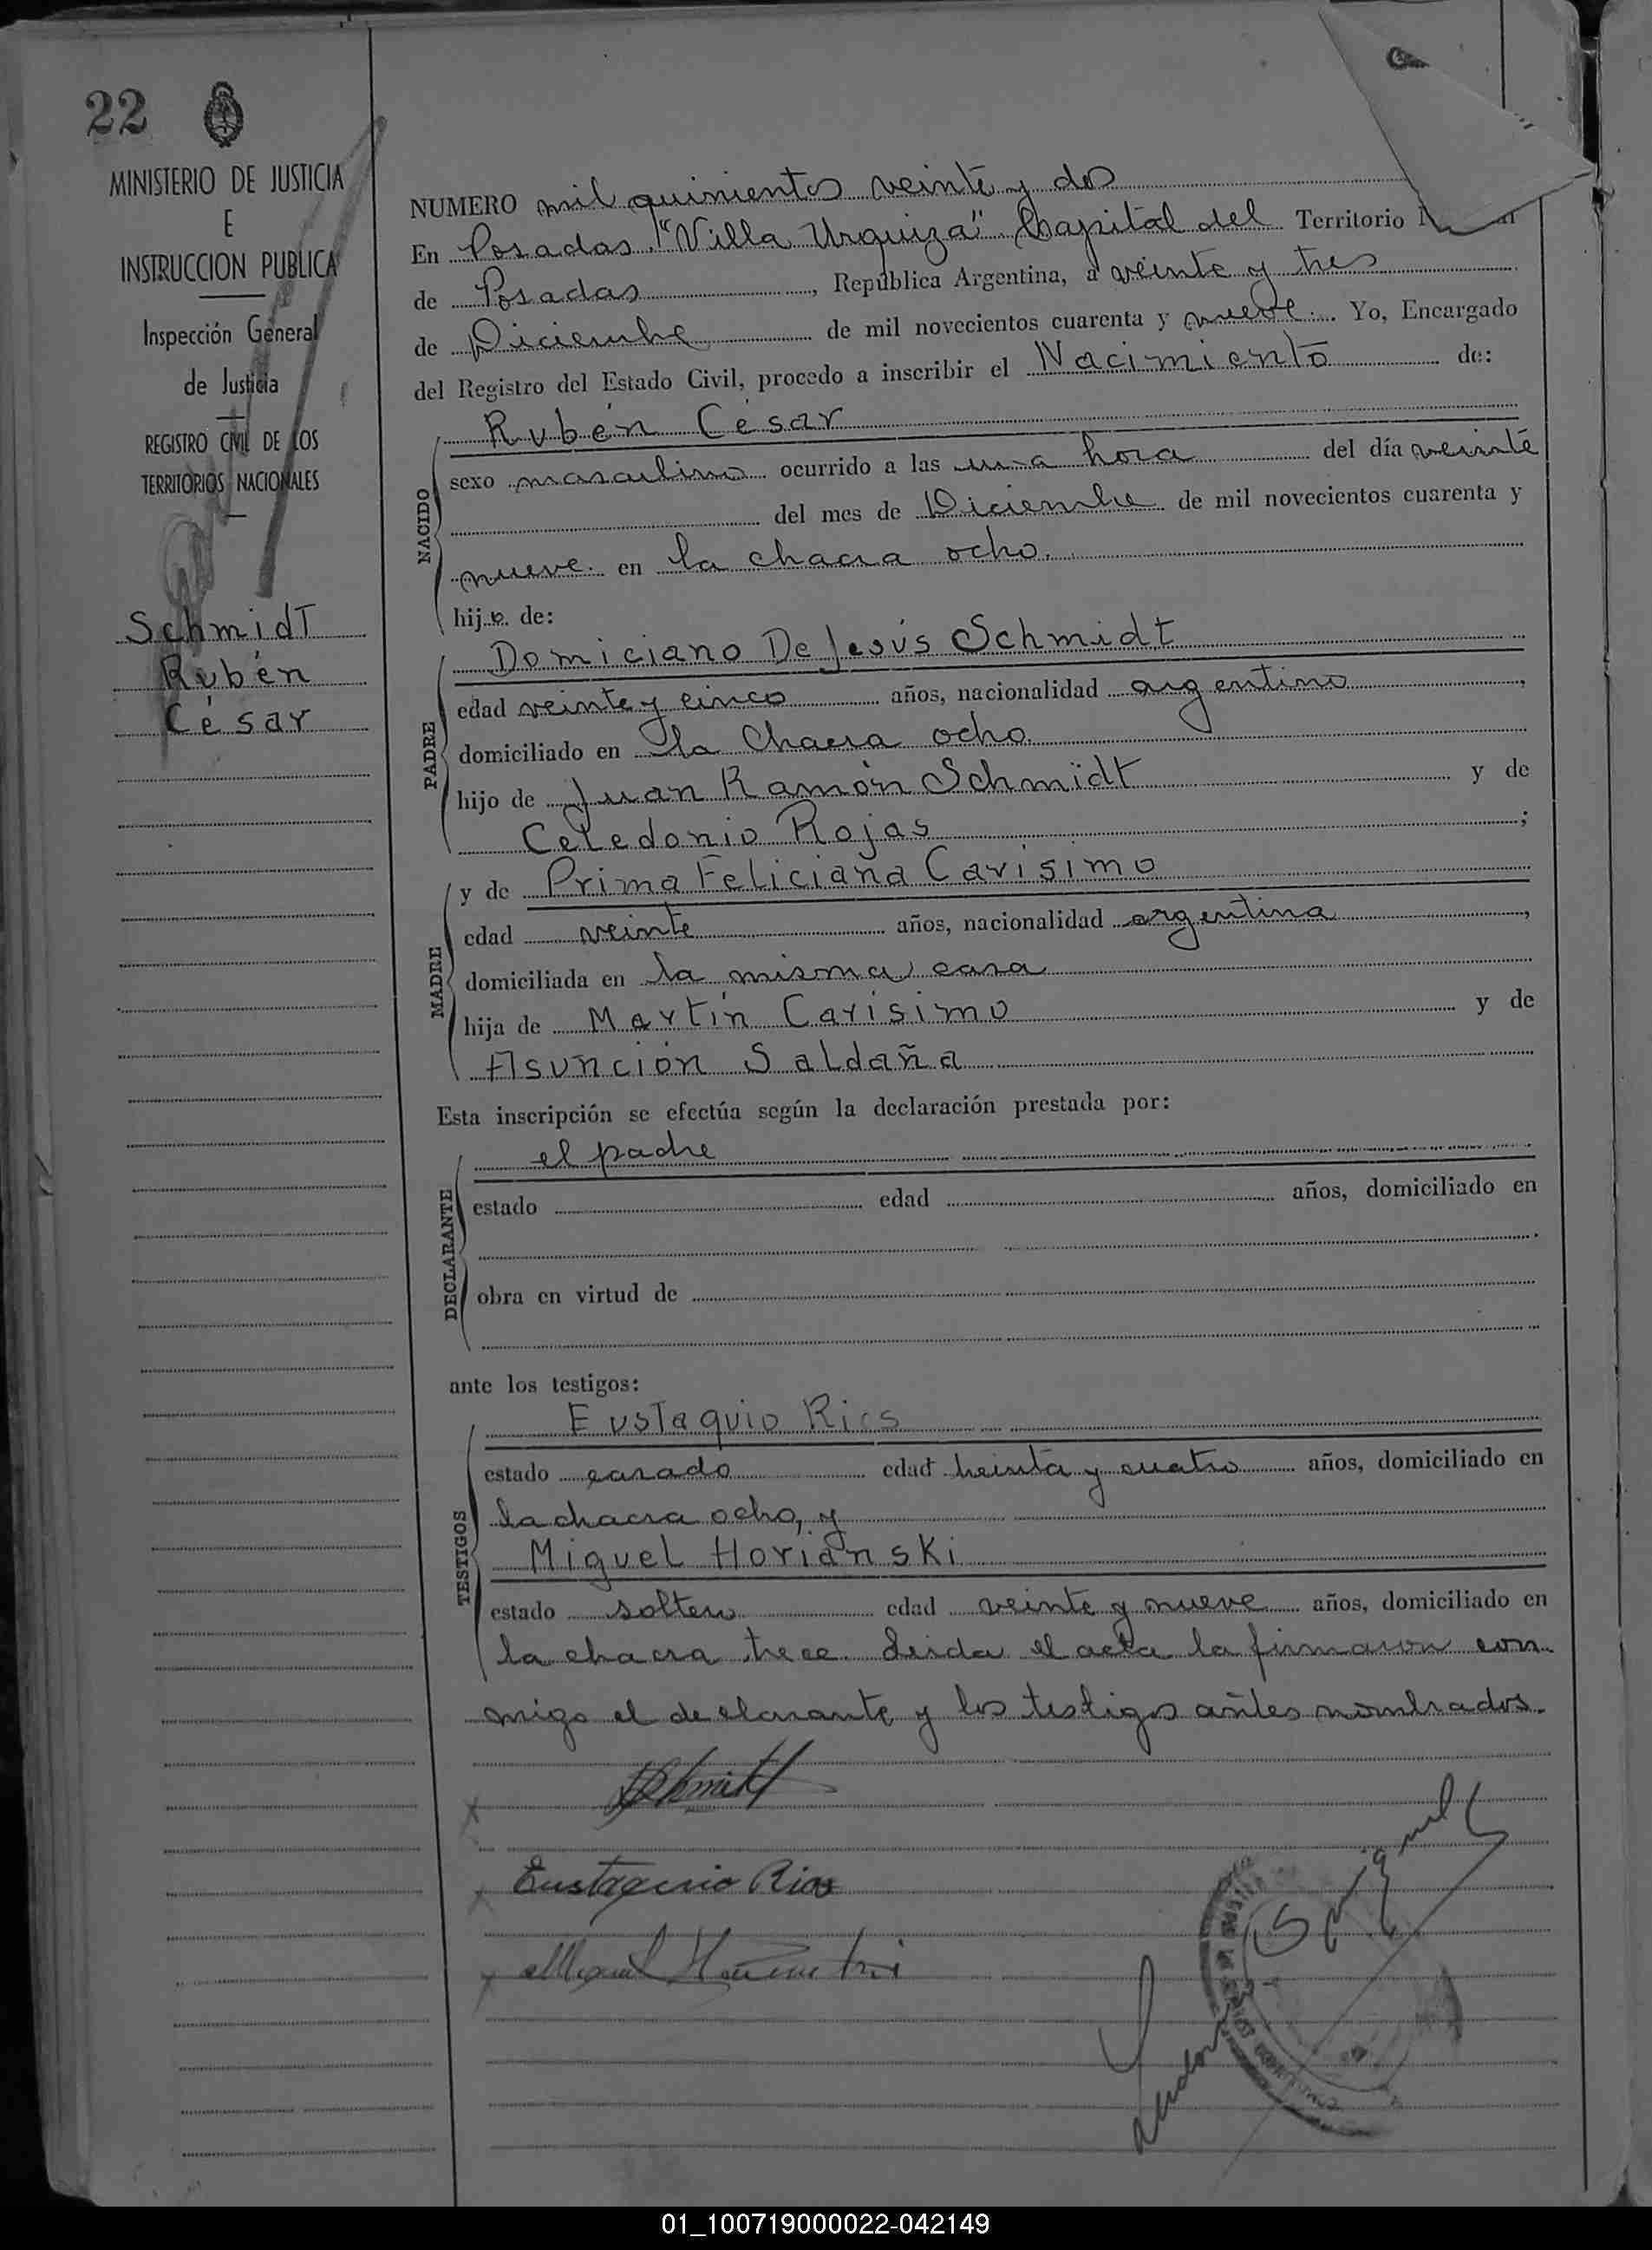 22
MINISTERIO DE JUSTICIA
E
INSTRUCCION PUBLICA
Inspección General
de Justicia
REGISTRO CIVIL DE LOS
TERRITORIOS NACIONALES
Schmidt
Rubén
César
NUMERO mil quinientos veinte y dos
En Posadas. "Villa Urquiza". Capital del Territorio
de Posadas, República Argentina, a veinte y tres
de Diciembre de mil novecientos cuarenta y nueve. Yo, Encargado
del Registro del Estado Civil, procedo a inscribir el Nacimiento de:
NACIDO
Rubén César
sexo masculino ocurrido a las una hora del día veinte
del mes de Diciembre de mil novecientos cuarenta y
nueve. en la chacra ocho.
hijo de:
PADRE
Domiciano De Jesús Schmidt
edad veinte y cinco años, nacionalidad argentino,
domiciliado en la Chacra ocho.
hijo de Juan Ramón Schmidt y de
Celedonio Rojas;
MADRE
y de Prima Feliciana Carisimo
edad veinte años, nacionalidad argentina,
domiciliada en la misma casa
hija de Martín Carisimo y de
Asunción Saldaña
Esta inscripción se efectúa según la declaración prestada por:
DECLARANTE
el padre
estado edad años, domiciliado en
obra en virtud de
ante los testigos:
TESTIGOS
Eustaquio Rios
estado casado edad treinta y cuatro años, domiciliado en
la chacra ocho, y
Miguel Horianski
estado soltero edad veinte y nueve años, domiciliado en
la chacra trece. Leida el acta la firmaron con
migo el declarante y los testigos antes nombrados.
Schmidt
Eustaquio Rios
Miguel
01_100719000022-042149